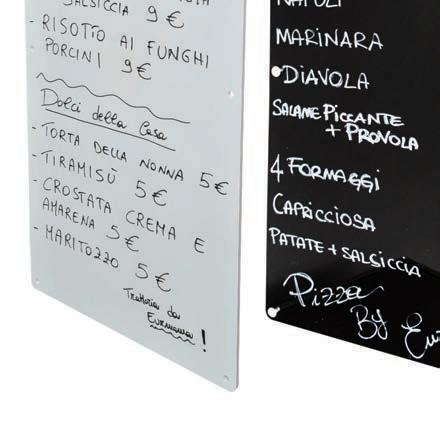 SALSICCIA 9€
- RISOTTO AI FUNGHI
PORCINI 9€
Dolci della Casa
- TORTA DELLA NONNA 5€
- TIRAMISÙ 5€
- CROSTATA CREMA E
AMARENA 5€
- MARITOZZO 5€
Trattoria da
!
NAPOLI
MARINARA
DIAVOLA
SALAME PICCANTE
+ PROVOLA
4 FORMAGGI
CAPRICCIOSA
PATATE + SALSICCIA
Pizza
By